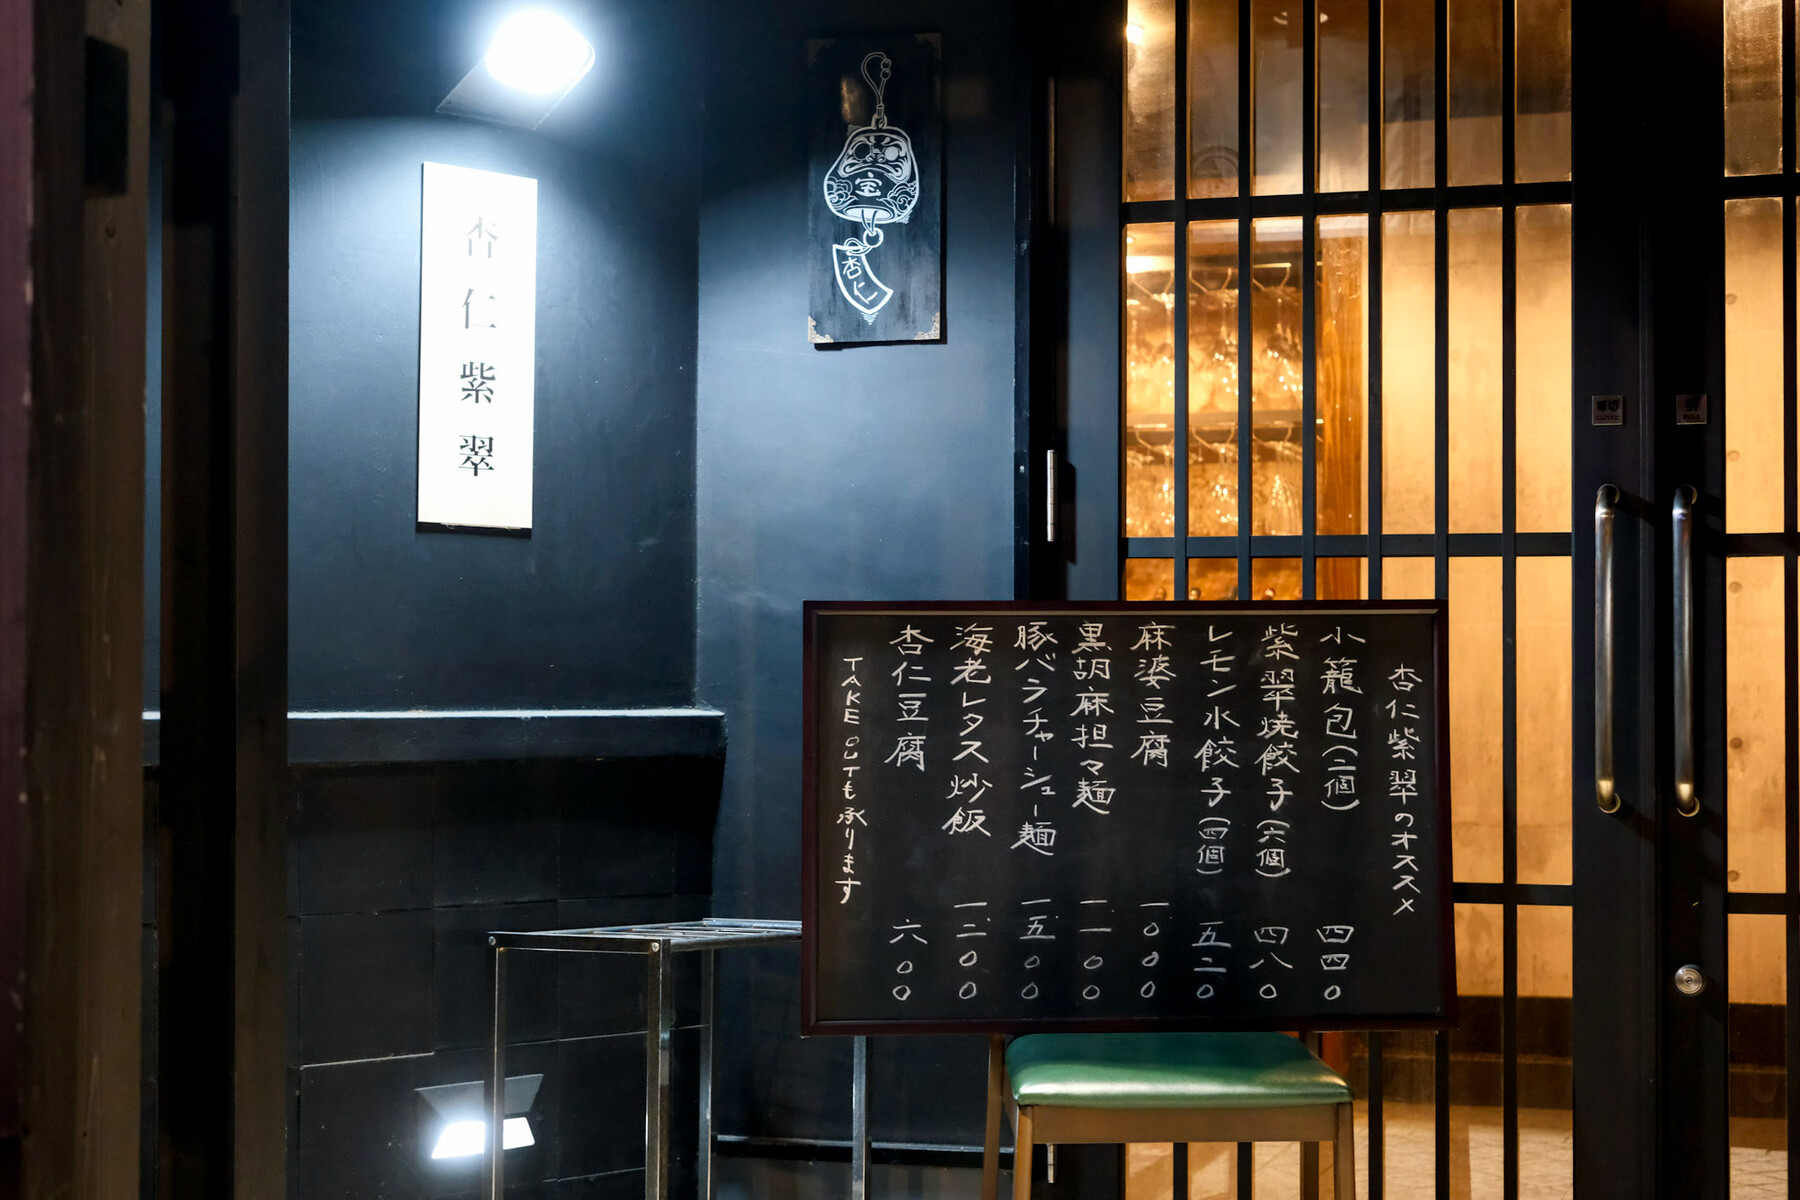 杏仁紫翠
宝
杏仁
杏仁紫翠のオススメ
小籠包(二個) 四四〇
紫翠焼餃子(六個) 四八〇
レモン水餃子(四個) 五二〇
麻婆豆腐 一〇〇〇
黒胡麻担々麺 一一〇〇
豚バラチャーシュー麺 一五〇〇
海老レタス炒飯 一二〇〇
杏仁豆腐 六〇〇
TAKE OUTも承ります